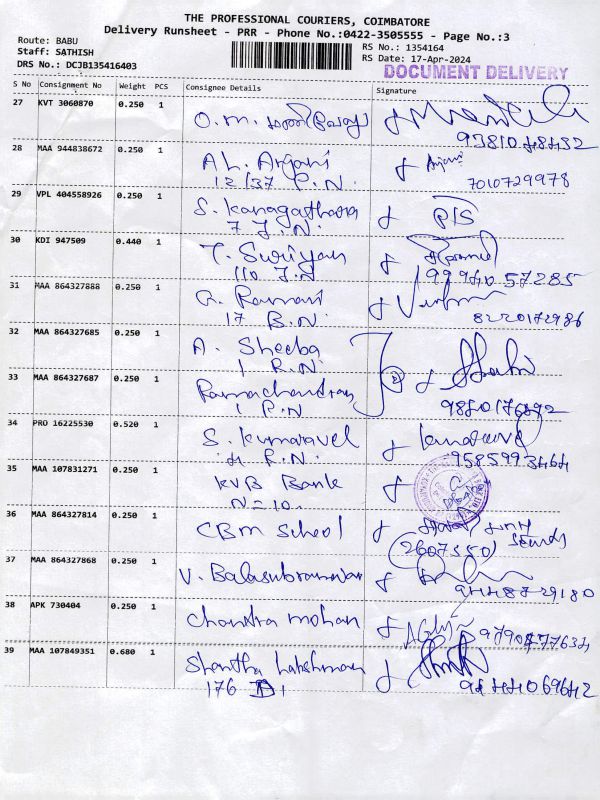 THE PROFESSIONAL COURIERS, COIMBATORE
Delivery Runsheet - PRR - Phone No.:0422-3505555 - Page No.:3
Route: BABU
Staff: SATHISH
DRS No.: DCJB135416403
RS No.: 1354164
RS Date: 17-Apr-2024
DOCUMENT DELIVERY
S No Consignment No Weight PCS Consignee Details Signature
27 KVT 3060870 0.250 1 O.M.
28 MAA 944838672 0.250 1 A L. Anjani Anjani
12/37 P.N. 7010729978
29 VPL 404558926 0.250 1 S. Kanagathara
7 J.N.
30 KDI 947509 0.440 1 T. Suriyan
110 J.N 9994057285
31 MAA 864327888 0.250 1 R. Ramani
17 B.N. 8220172986
32 MAA 864327685 0.250 1 A. Sheeba
1 R.N.
33 MAA 864327687 0.250 1 Ramachandran
1 P.N
34 PRO 16225530 0.520 1 S. Kumaravel
4 R.N. 9585993464
35 MAA 107831271 0.250 1 KVB Bank
N=10.
36 MAA 864327814 0.250 1 CBM School
2607550
37 MAA 864327868 0.250 1 V. Balasubramaniar
9448729180
38 APK 730404 0.250 1 Chandra mohan
39 MAA 107849351 0.680 1 Shantha Lakshman
176